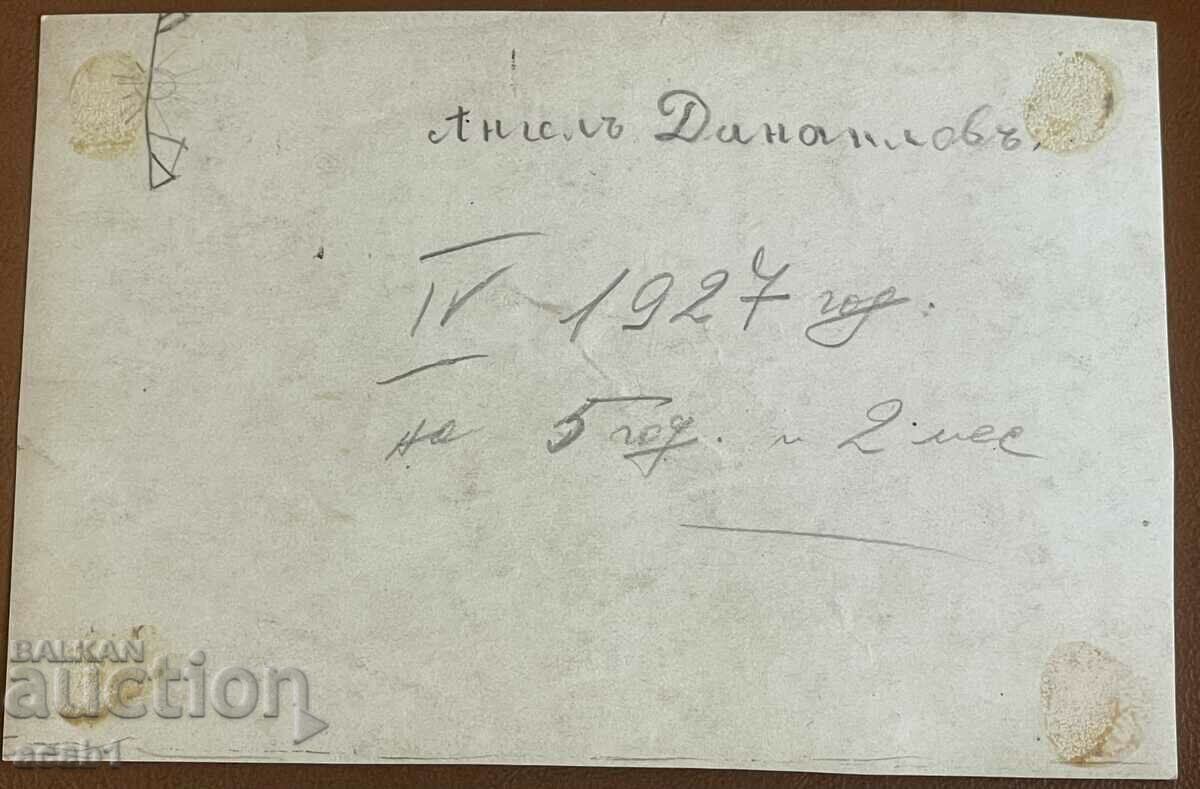 Ангелъ Данаиловъ.
IV 1927 год.
на 5 год. и 2 мес
BALKAN
auction
acab1